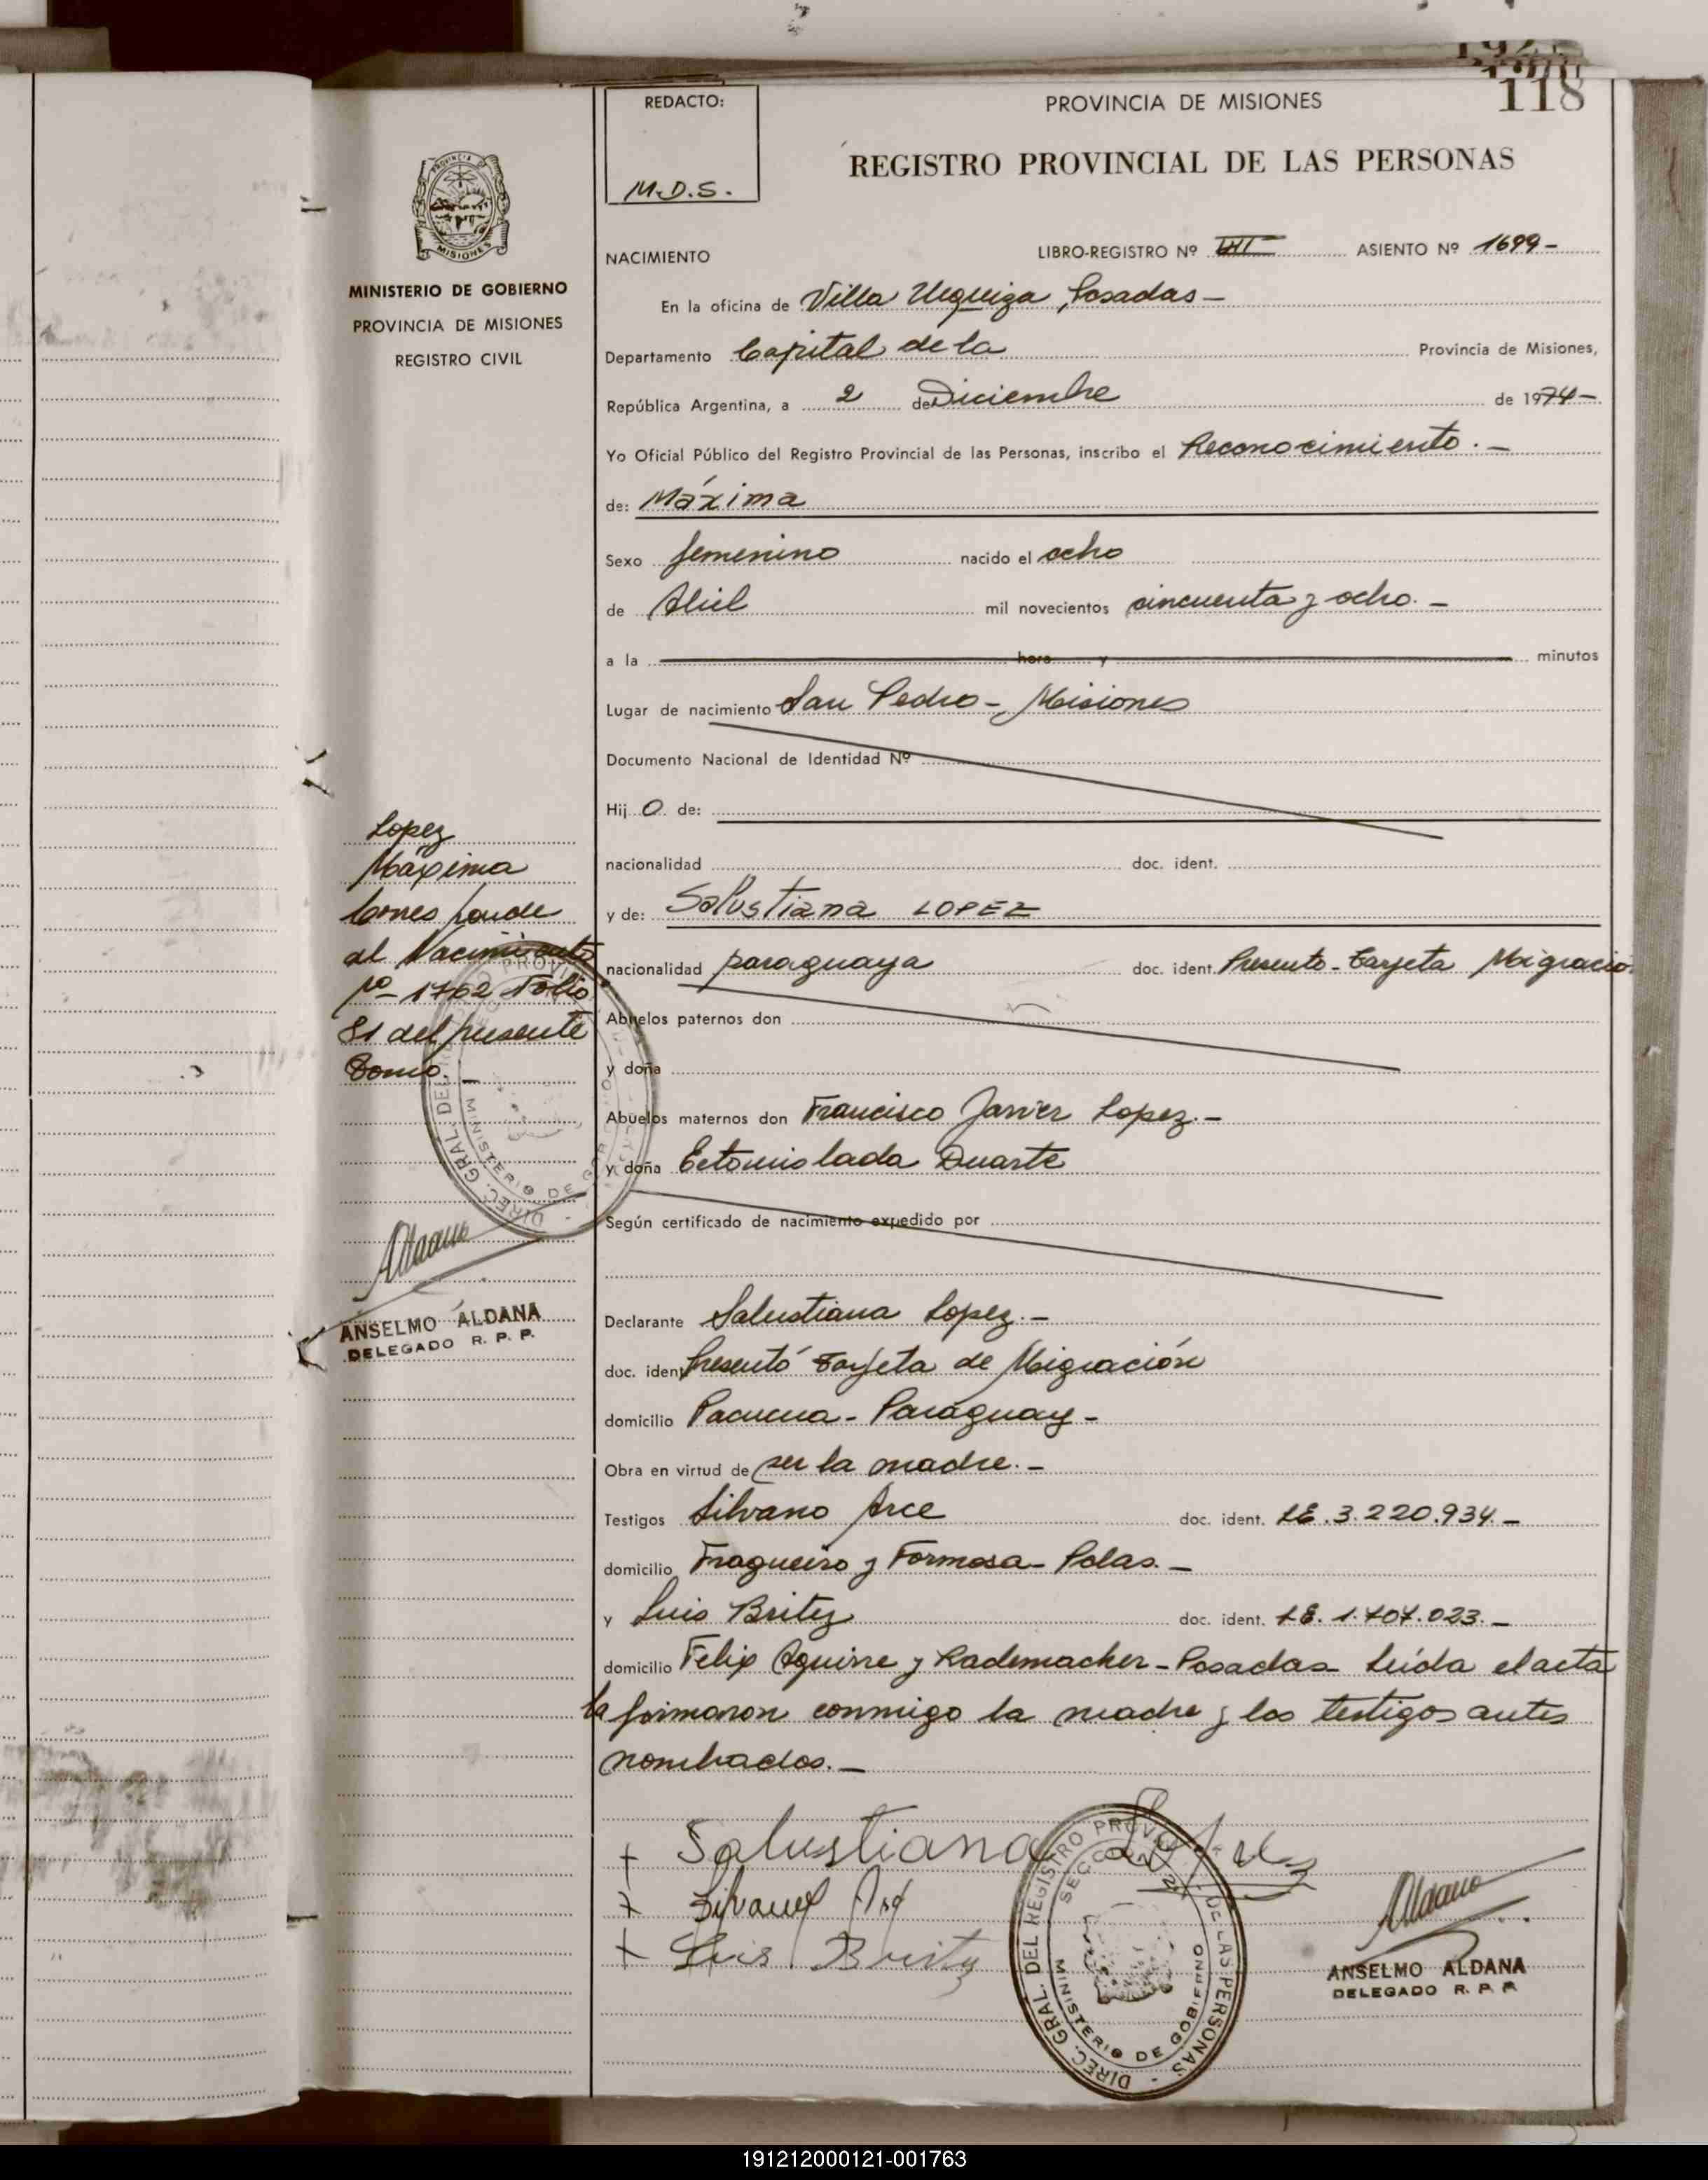 118
REDACTO:
M.D.S.
PROVINCIA DE MISIONES
REGISTRO PROVINCIAL DE LAS PERSONAS
MISIONES
MINISTERIO DE GOBIERNO
PROVINCIA DE MISIONES
REGISTRO CIVIL
NACIMIENTO LIBRO-REGISTRO Nº ASIENTO Nº 1699-
En la oficina de Villa Urquiza, Posadas-
Departamento Capital de la Provincia de Misiones,
República Argentina, a 2 de Diciembre de 1974-
Yo Oficial Público del Registro Provincial de las Personas, inscribo el Reconocimiento.-
de: Máxima
Sexo femenino nacido el ocho
de Abril mil novecientos cincuenta y ocho.-
a la hora y minutos
Lugar de nacimiento San Pedro - Misiones
Documento Nacional de Identidad Nº
Hij o de:
nacionalidad doc. ident.
y de: Salustiana LOPEZ
nacionalidad paraguaya doc. ident. Presento - Tarjeta Migració
Abuelos paternos don
y doña
Abuelos maternos don Francisco Javier Lopez.-
y doña Duarte
Según certificado de nacimiento expedido por
Declarante Salustiana Lopez.-
doc. ident Presentó Tarjeta de Migración
domicilio - Paraguay -
Obra en virtud de ser la madre.-
Testigos Silvano Arce doc. ident. LE.3.220.934.-
domicilio Fragueiro y Formosa - Pdas.-
y Luis Britez doc. ident. LE. 1.707.023.-
domicilio Felix Aguirre y Rademacher - Posadas Leída el acta
la firmaron conmigo la madre y los testigos antes
nombrados.-
Lopez
Máxima
Corresponde
al Nacimiento
nº 1762 Folio
81 del presente
Tomo.-
Aldana
ANSELMO ALDANA
DELEGADO R. P. P.
+ Salustiana Lopez
+ Silvano Arce
+ Luis Britez
DIREC. GRAL. DEL REGISTRO PROVINCIAL DE LAS PERSONAS
MINISTERIO DE GOBIERNO
Aldana
ANSELMO ALDANA
DELEGADO R. P. P.
191212000121-001763